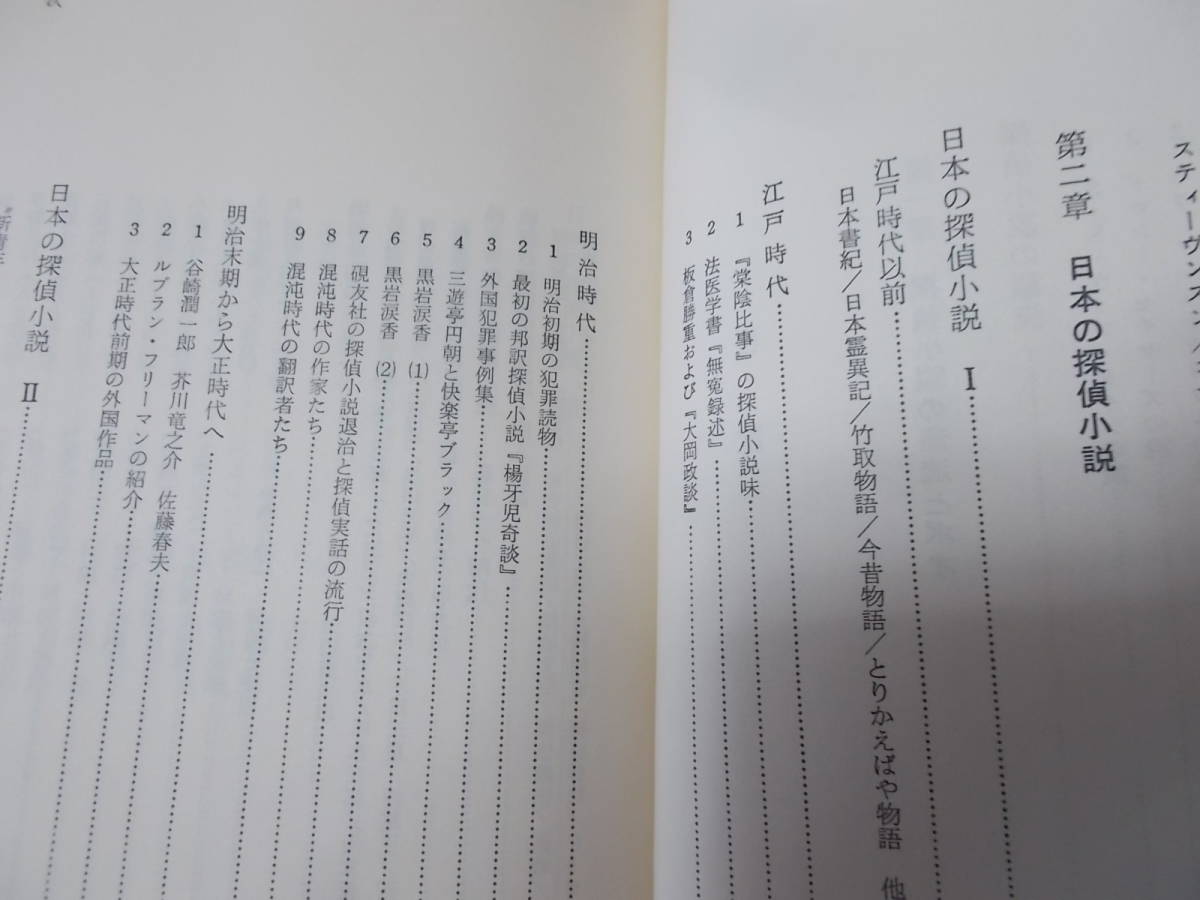 スティーヴンスン／
第二章　日本の探偵小説
日本の探偵小説　Ⅰ
江戸時代以前
日本書紀／日本霊異記／竹取物語／今昔物語／とりかえばや物語　他
江戸時代
1　『棠陰比事』の探偵小説味
2　法医学書『無冤録述』
3　板倉勝重および『大岡政談』
明治時代
1　明治初期の犯罪読物
2　最初の邦訳探偵小説『楊牙児奇談』
3　外国犯罪事例集
4　三遊亭円朝と快楽亭ブラック
5　黒岩涙香　(1)
6　黒岩涙香　(2)
7　硯友社の探偵小説退治と探偵実話の流行
8　混沌時代の作家たち
9　混沌時代の翻訳者たち
明治末期から大正時代へ
1　谷崎潤一郎　芥川竜之介　佐藤春夫
2　ルブラン・フリーマンの紹介
3　大正時代前期の外国作品
日本の探偵小説　Ⅱ